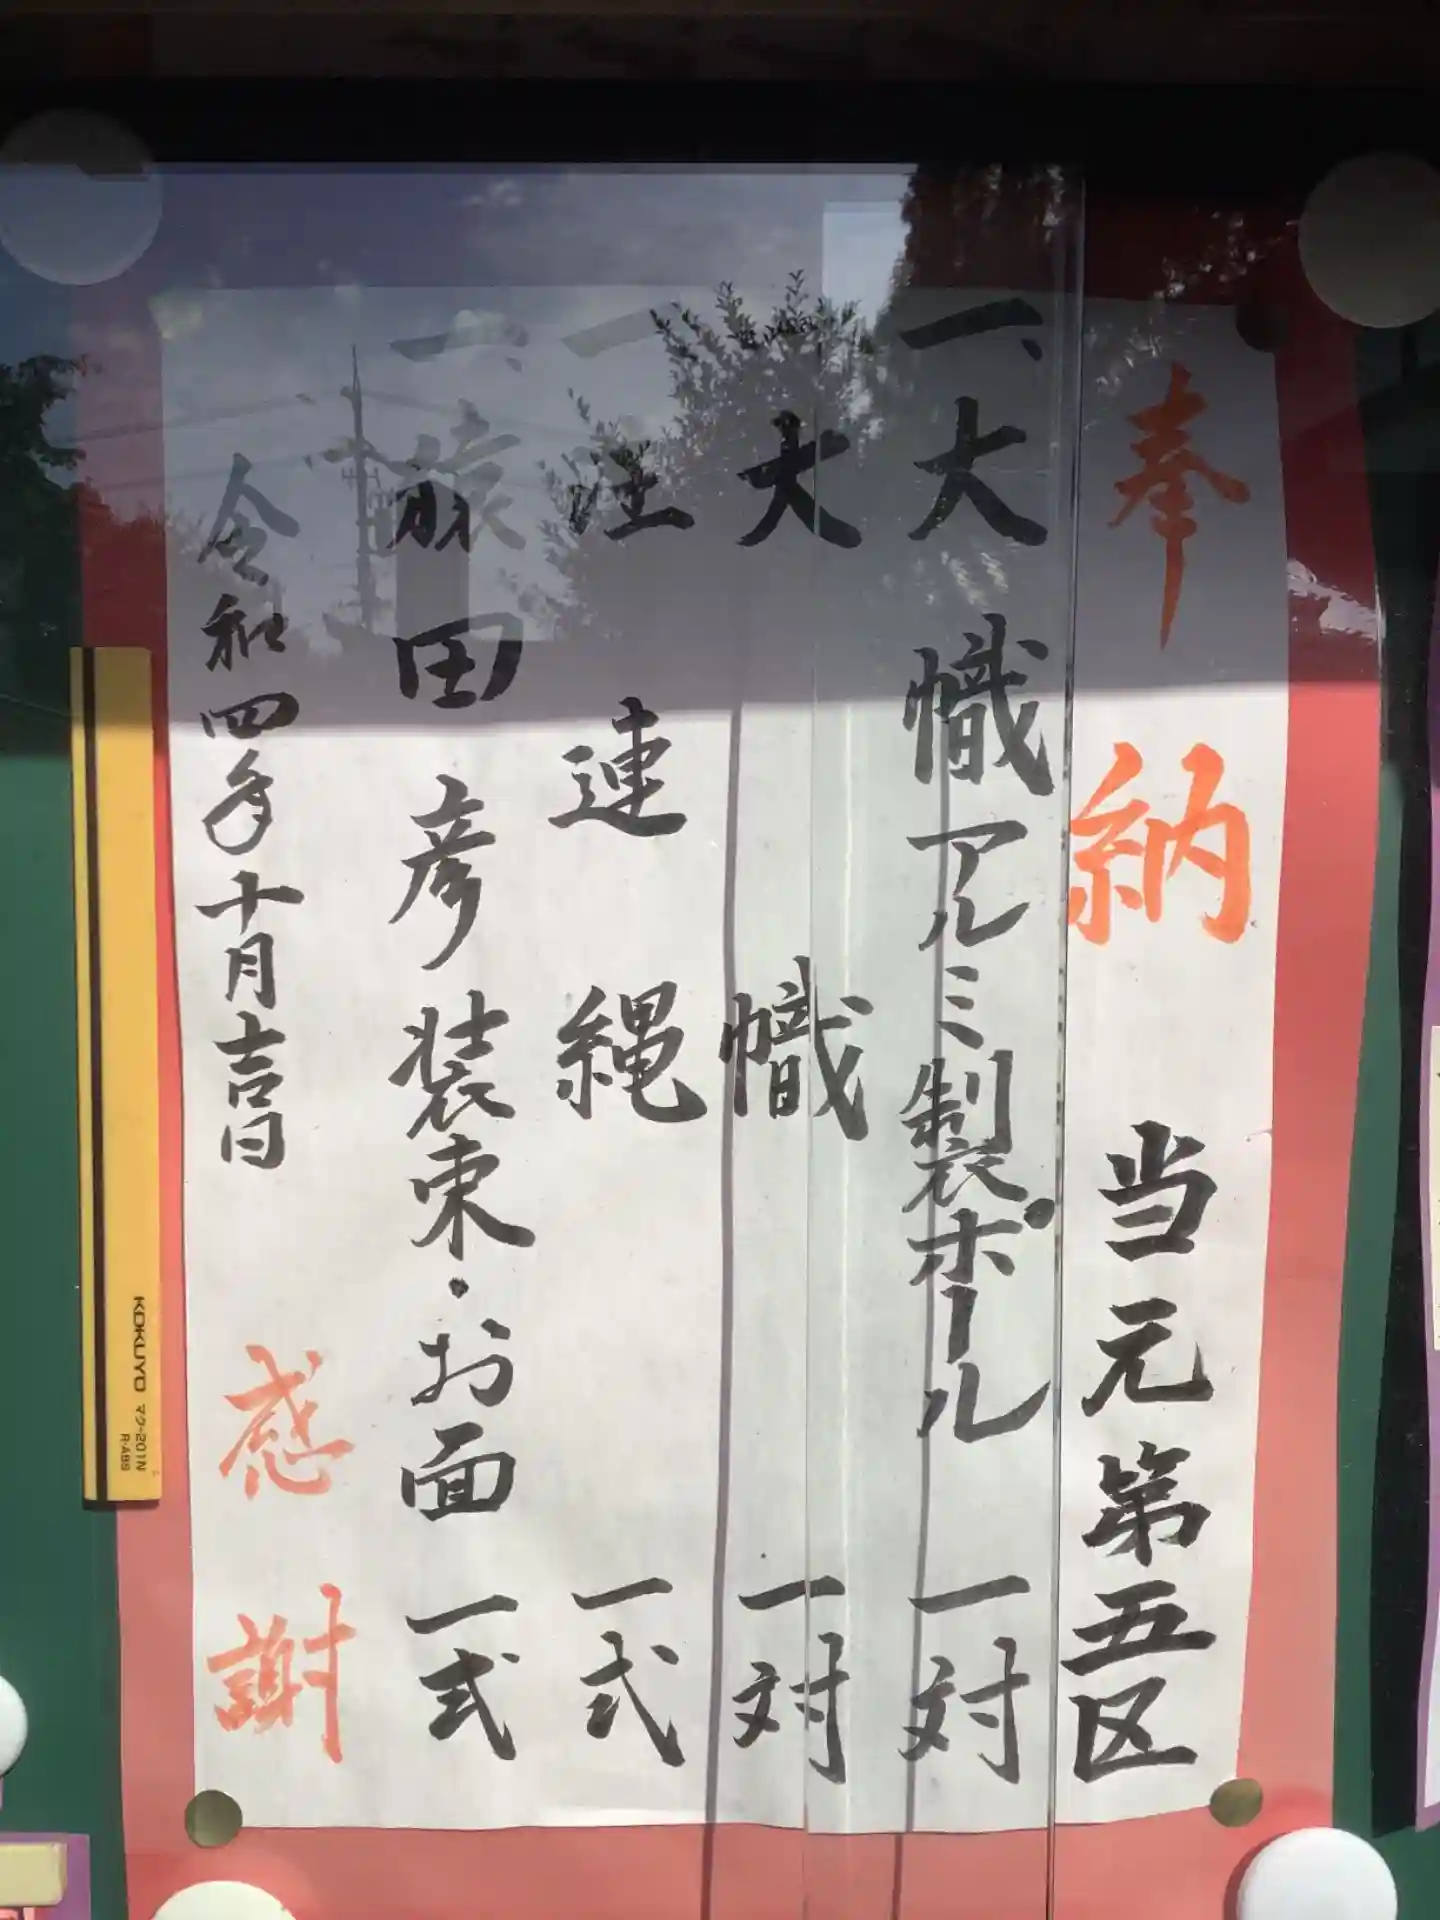 奉納 当元第五区
一、大幟アルミ製ポール 一対
大幟 一対
一 注連縄 一式
一、猿田彦装束・お面 一式
令和四年十月吉日 感謝
KOKUYO マク-201N
R-ABS